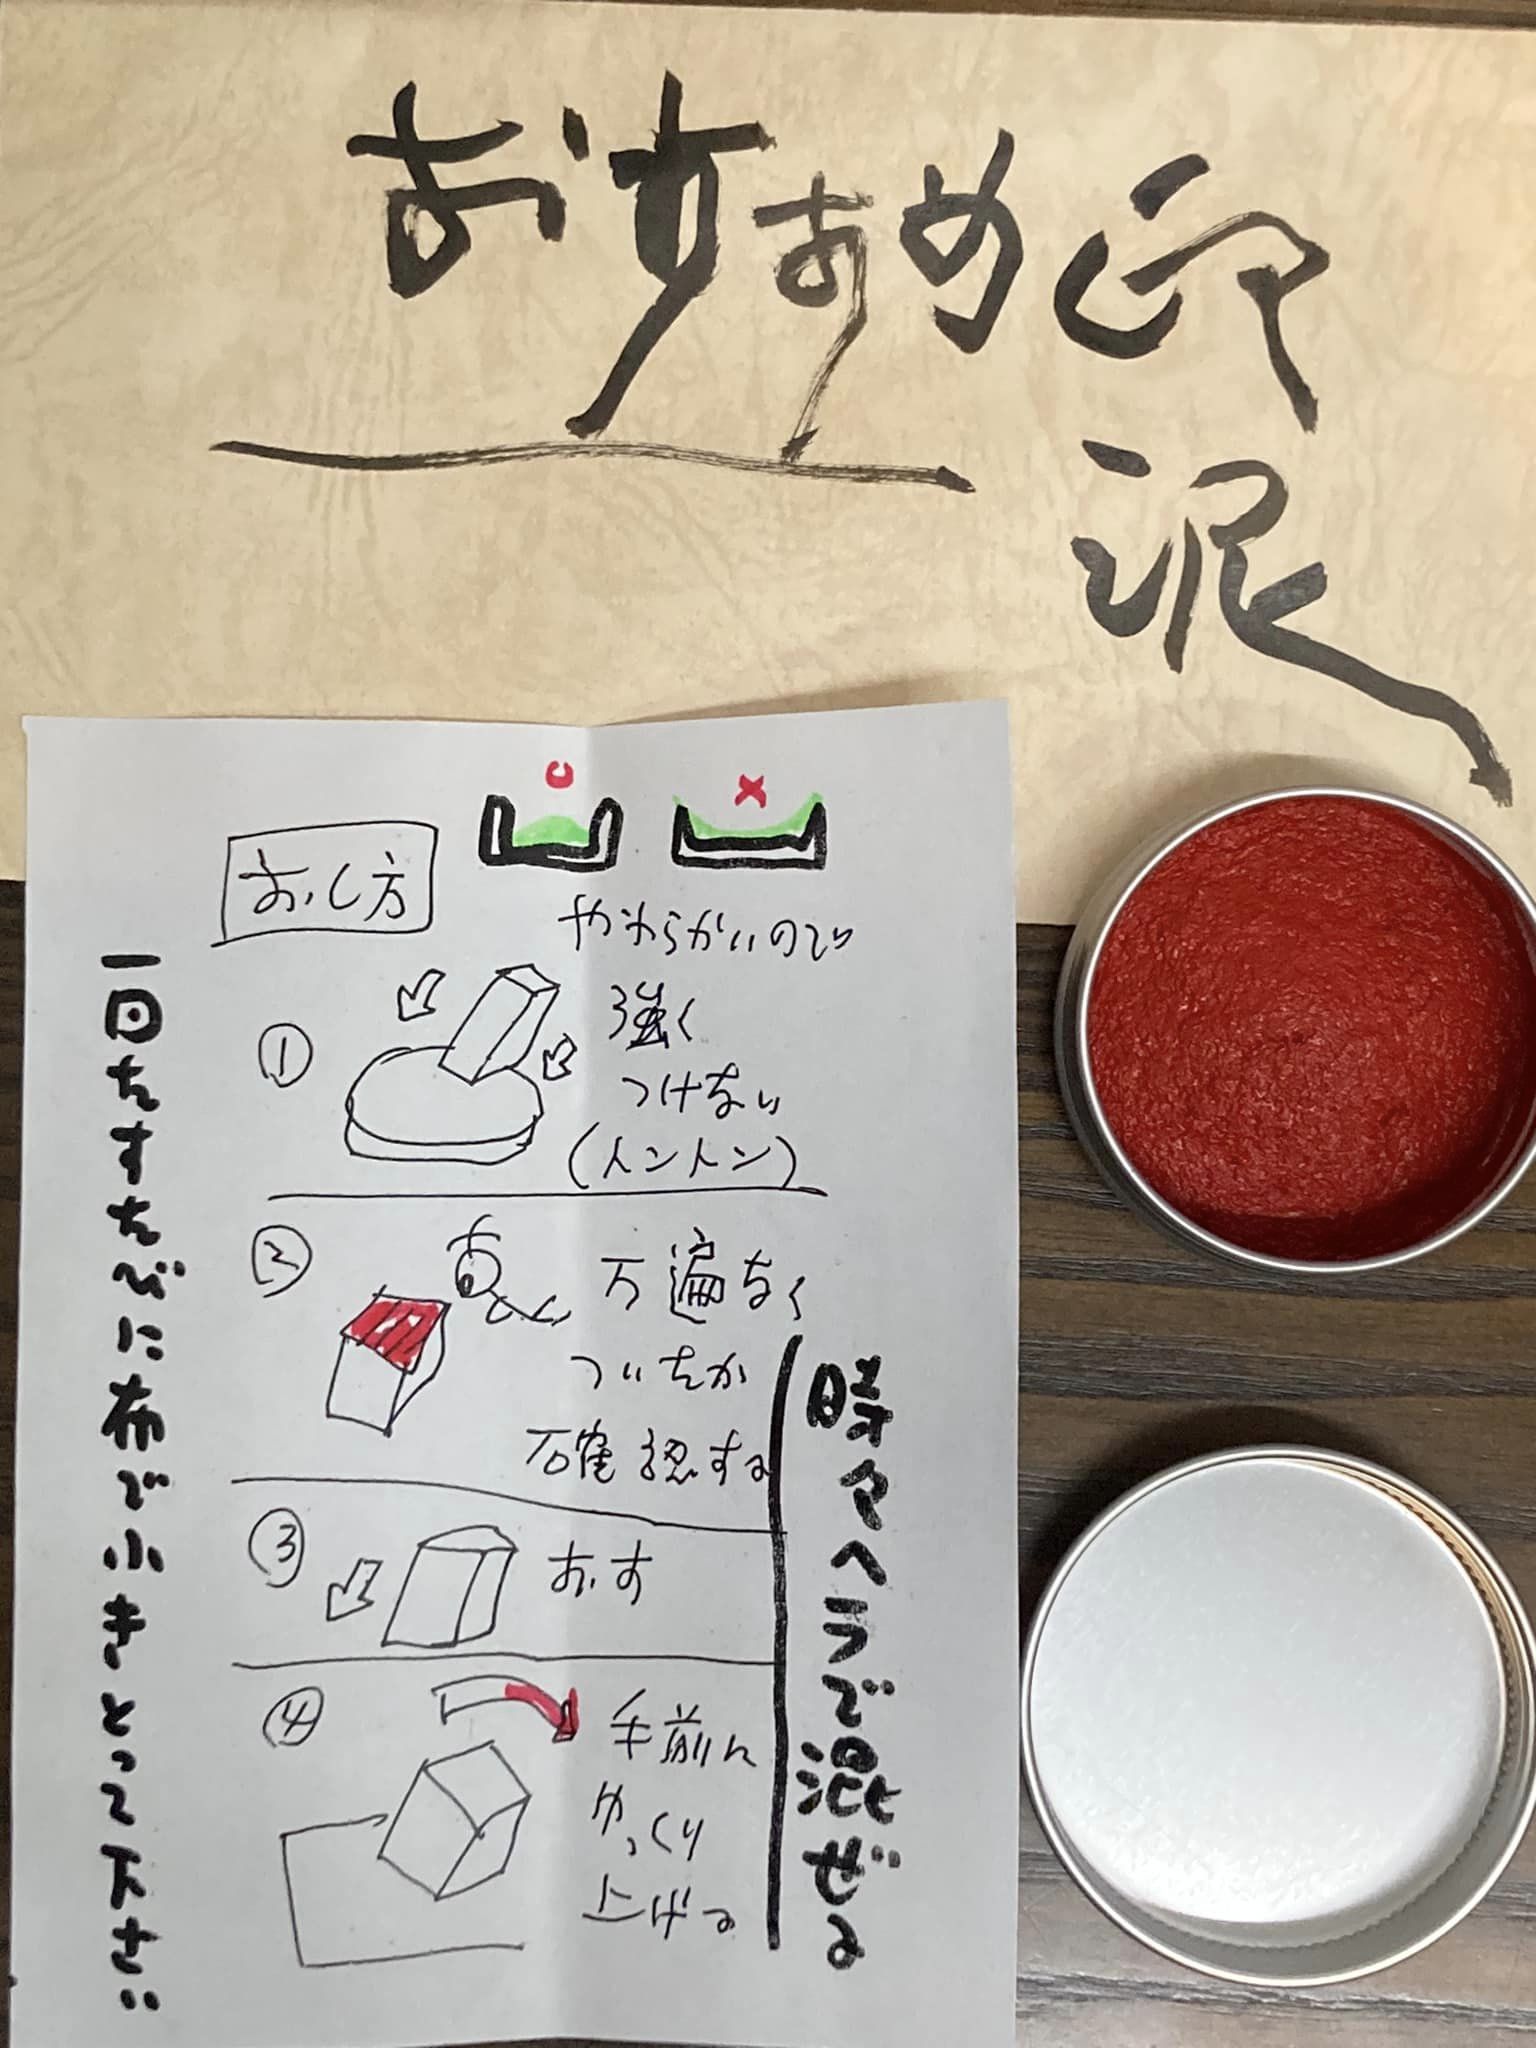 おすすめ印
泥
○ ×
おし方
① やわらかいので
強く
つけない
(トントン)
② 万遍なく
ついたか
確認する
③ おす
④ 手前に
ゆっくり
上げる
時々ヘラで混ぜる
一回おすたびに布でふきとって下さい